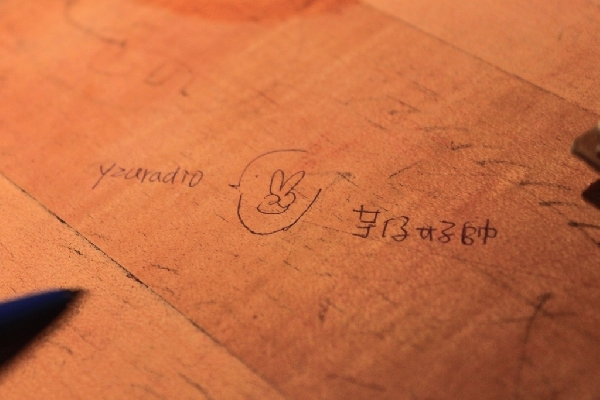 yzuradio
芋仔好帥